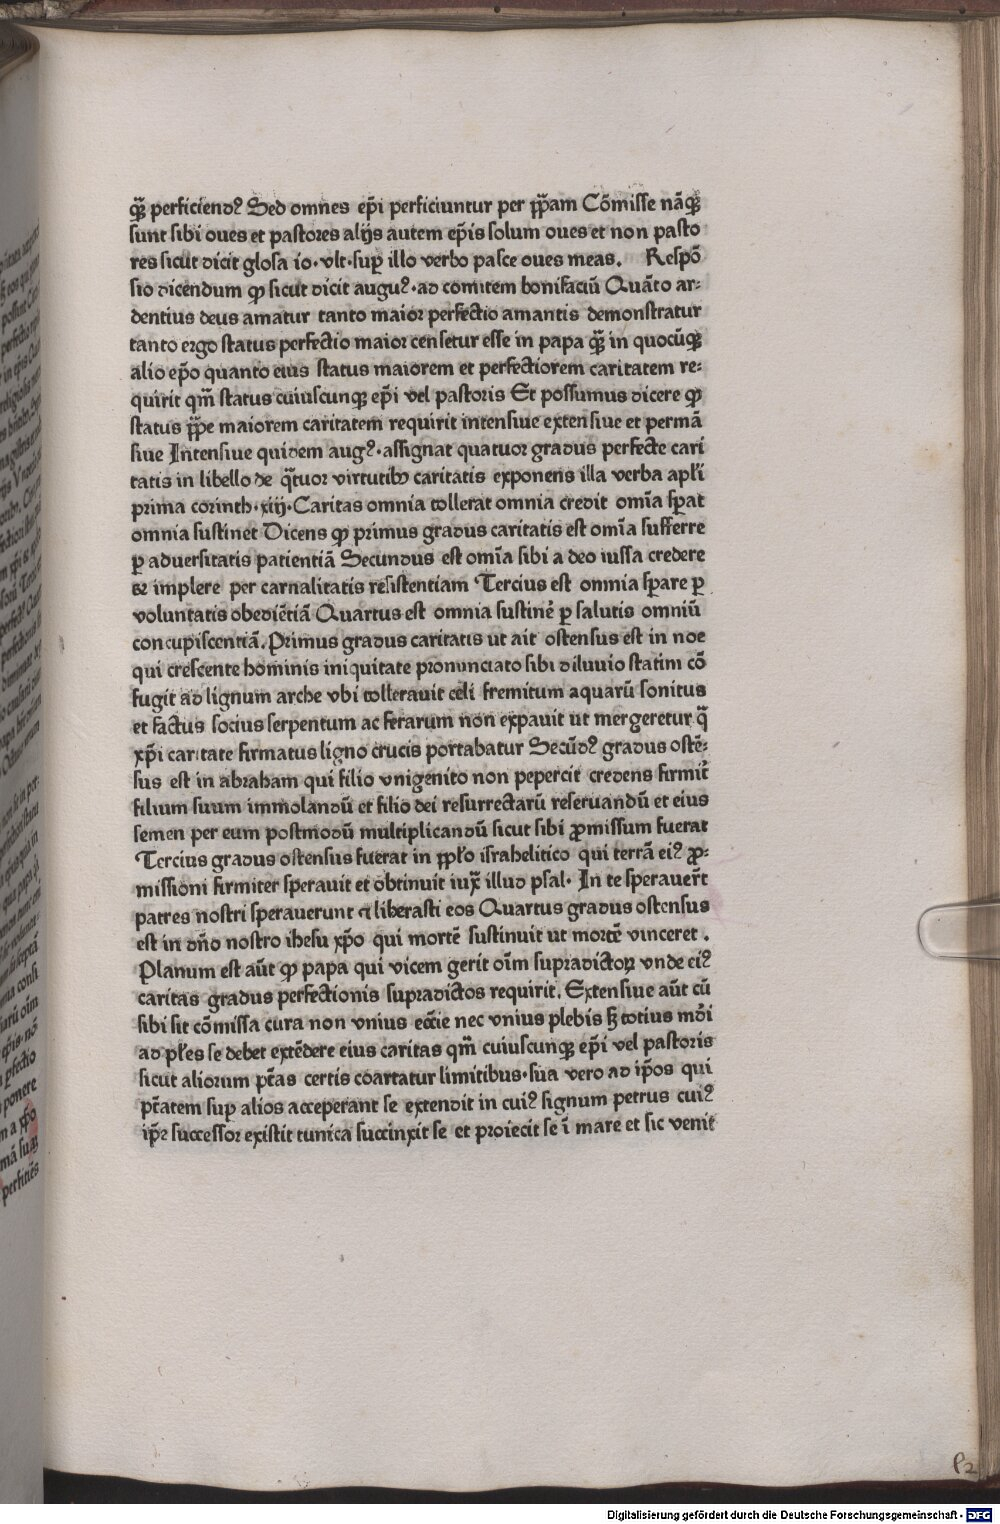 qꝫ̃ perficiendꝰ Sed omnes ep̃i perficiuntur per pp̃am Cõmisse nãqꝫ
sunt sibi oues et pastores alijs autem ep̃is solum oues et non pasto
res sicut dicit glosa io·vlt·sup̱ illo verbo pasce oues meas. Respõ
sio dicendum ꝙ sicut dicit auguꝰ·ad comitem bonifaciũ Quãto ar⸗
dentius deus amatur tanto maior perfectio amantis demonstratur
tanto ergo status perfectio maior censetur esse in papa qꝫ̃ in quocũqꝫ
alio ep̃o quanto eius status maiorem et perfectiorem caritatem re⸗
quirit qm̃ status cuiuscunqꝫ ep̃i vel pastoris Et possumus dicere ꝙ
status pp̃e maiorem caritatem requirit intensiue extensiue et permã
siue Intensiue quidem augꝰ·assignat quatuor gradus perfecte cari
tatis in libello de q̃tuor virtutibꝫ caritatis exponens illa verba apl̃i
prima corinth·xiij·Caritas omnia tollerat omnia credit omĩa sꝑat
omnia sustinet Dicens ꝙ primus gradus caritatis est omĩa sufferre
ꝑ aduersitatis patientiã Secundus est omĩa sibi a deo iussa credere
⁊ implere per carnalitatis resistentiam Tercius est onmia sꝑare ꝑ
voluntatis obediẽtiã Quartus est omnia sustinẽ ꝑ salutis omniũ
concupiscentiã. Primus gradus caritatis ut ait ostensus est in noe
qui crescente hominis iniquitate pronunciato sibi diluuio statim cõ
fugit ad lignum arche vbi tollerauit celi fremitum aquarũ sonitus
et factus socius serpentum ac ferarum non expauit ut mergeretur q̃
xp̃i caritate firmatus ligno crucis portabatur Secũdꝰ gradus ostẽ⸗
sus est in abraham qui filio vnigenito non pepercit credens firmit̃
filium suum immolandũ et filio dei resurrectarũ reseruandũ et eius
semen per eum postmodũ multiplicandũ sicut sibi ꝓmissum fuerat
Tercius gradus ostensus fuerat in pp̃lo israhelitico qui terrã eiꝰ ꝓ⸗
missioni firmiter sperauit et obtinuit iux̃ illud psal· In te sperauer̃t
patres nostri sperauerunt ⁊ liberasti eos Quartus gradus ostensus
est in dñο nostro ihesu xp̃o qui mortẽ sustinuit ut mortẽ vinceret .
Planum est aũt ꝙ papa qui vicem gerit oĩm supradictoꝝ vnde eiꝰ
caritas gradus perfectionis supradictos requirit. Extensiue aũt cũ
sibi sit cõmissa cura non vnius eccĩe nec vnius plebis sꝫ totius mõi
ad pl̃es se debet extẽdere eius caritas qm̃ cuiuscunqꝫ ep̃i vel pastoris
sicut aliorum pt̃as certis coartatur limitibus·sua vero ad ip̃os qui
pt̃atem sup̱ alios acceperant se extendit in cuiꝰ signum petrus cuiꝰ
ip̃e successor existit tunica succinxit se et proiecit se ĩ mare et sic venit
Digitalisierung gefördert durch die Deutsche Forschungsgemeinschaft - DFG